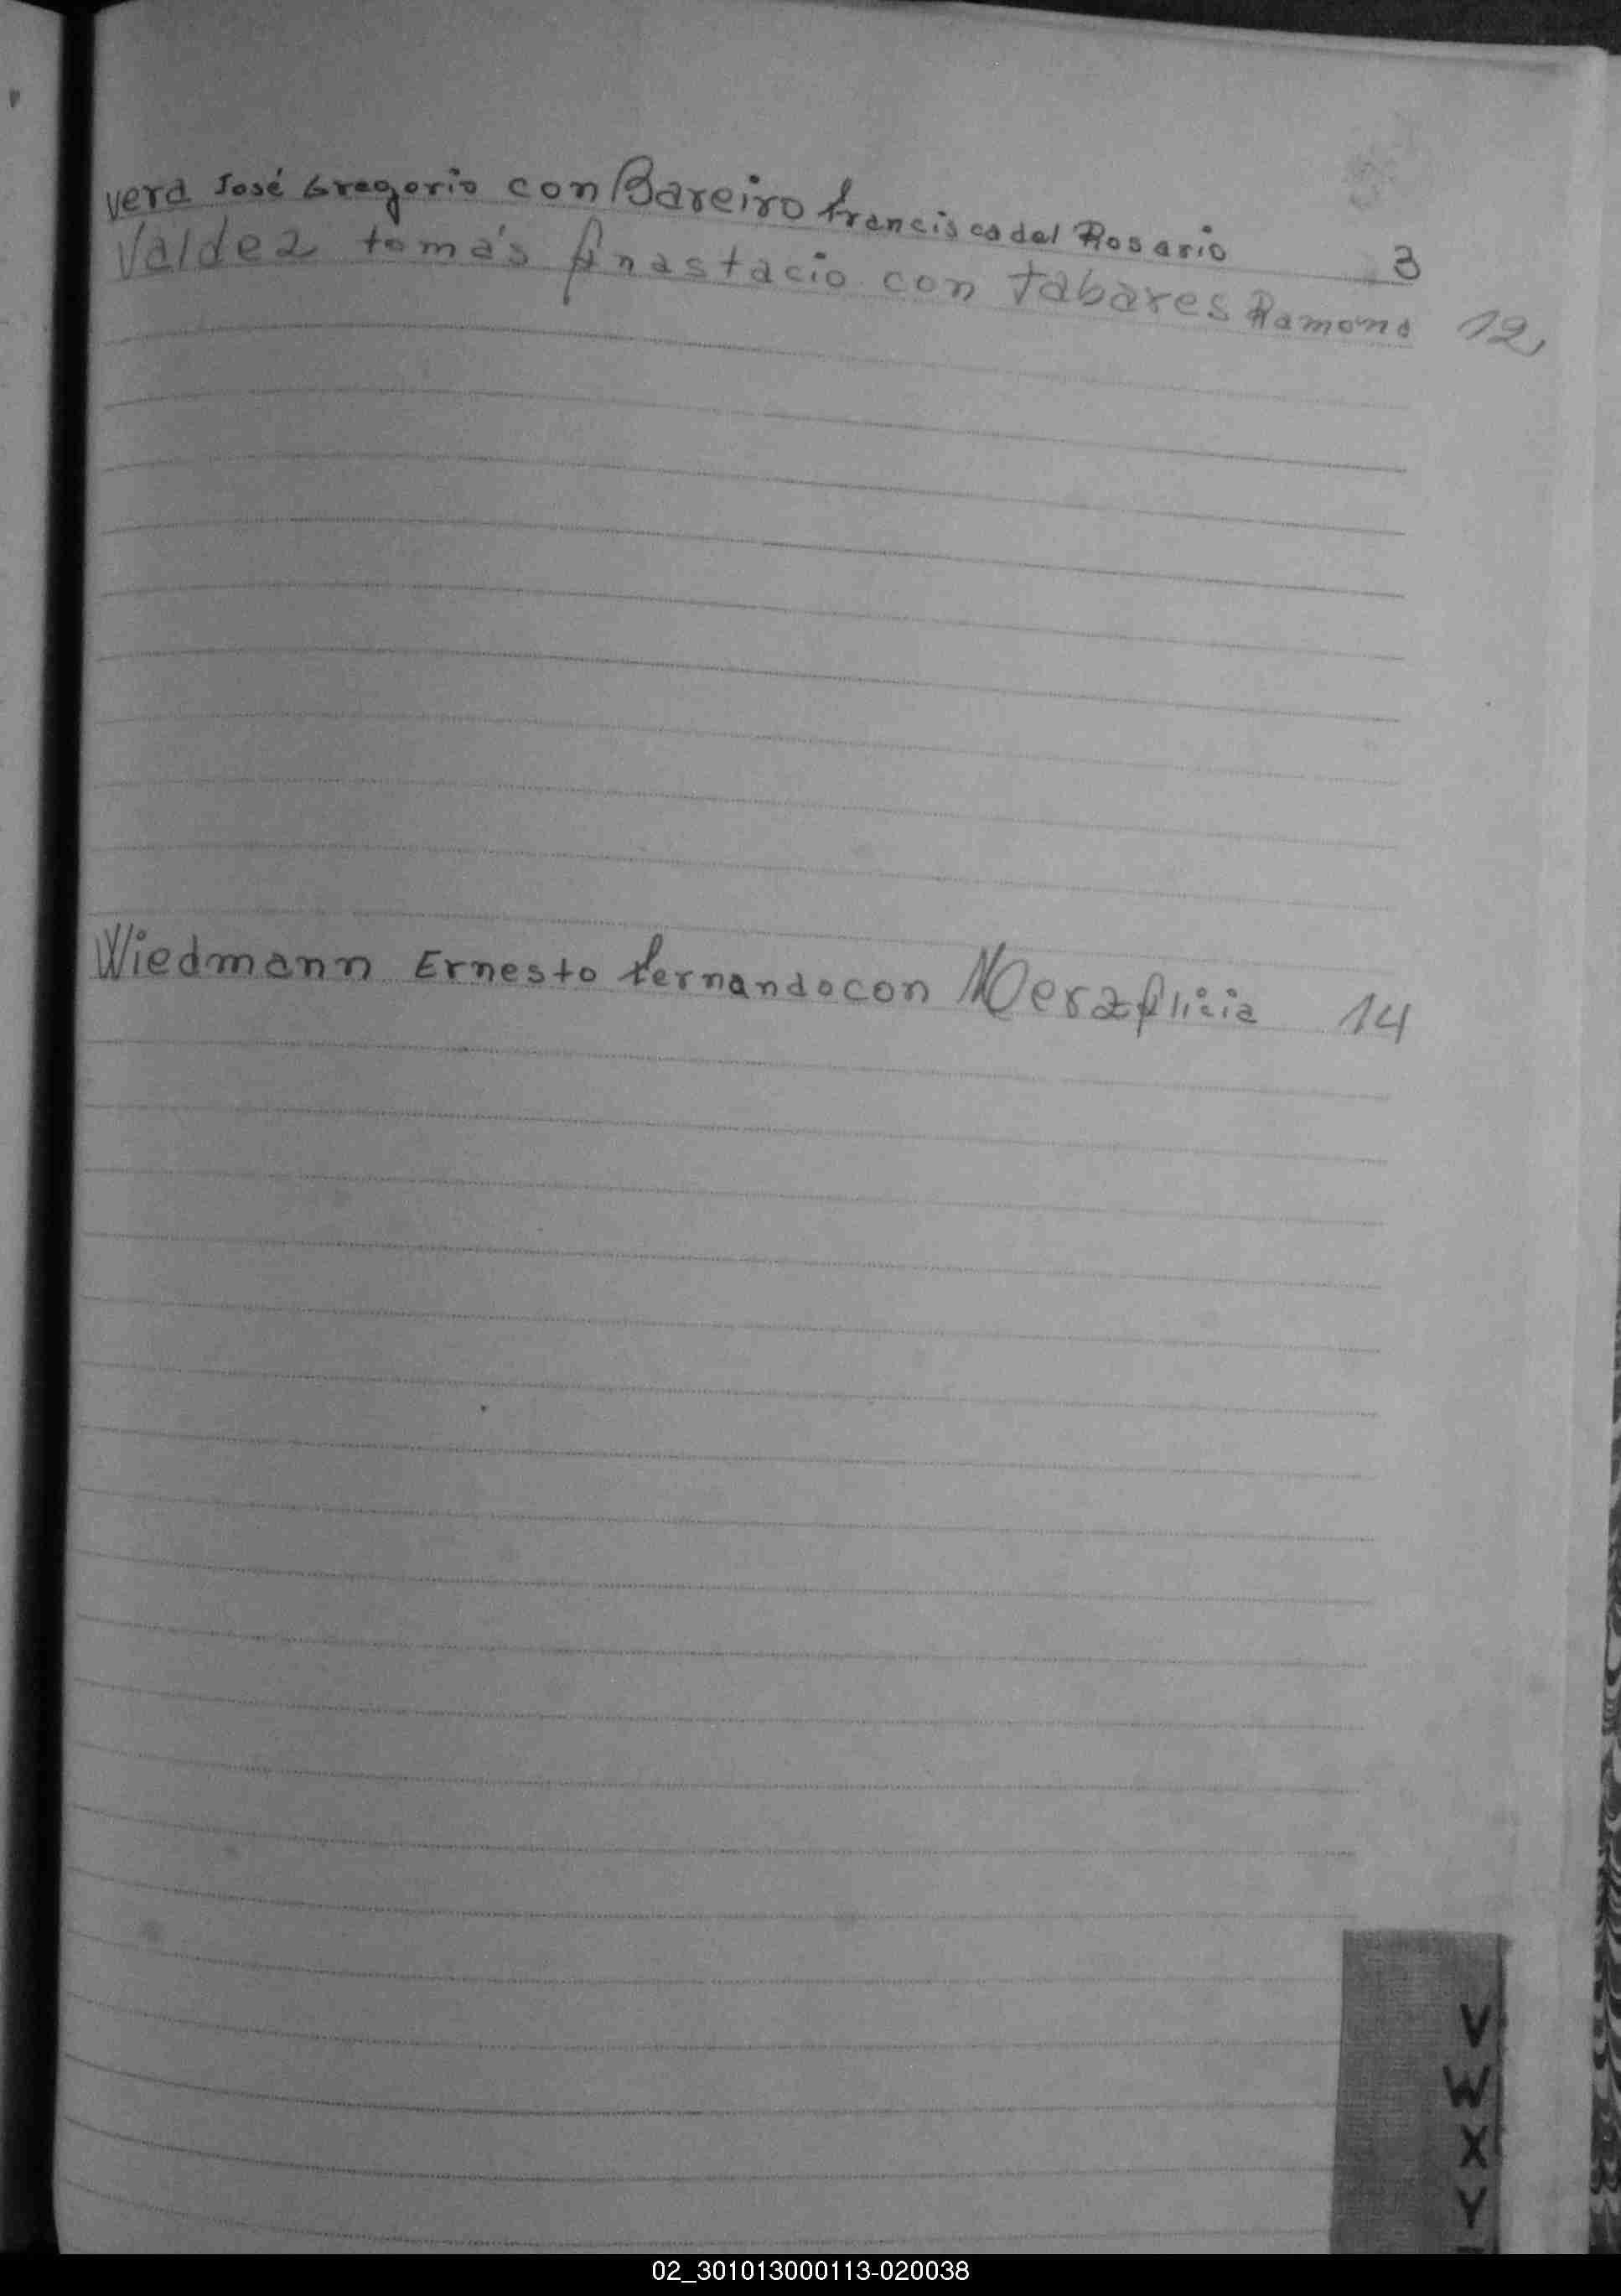 Vera José Gregorio con Bareiro francisca del Rosario 3
Valdez tomás Anastacio con tabares Ramona 12,
Wiedmann Ernesto fernando con Mera Alicia 14
V
W
X
Y
02_301013000113-020038